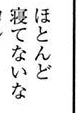 ほとんど
寝てないな